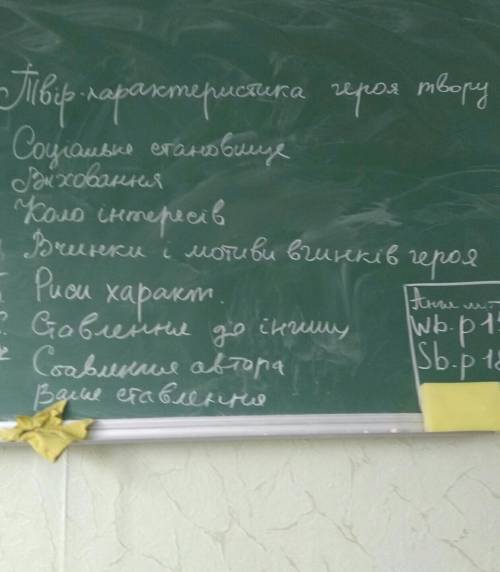 Твір-характеристика героя твору
Соціальне становище
Виховання
Коло інтересів
Вчинки і мотиви вчинків героя
Риси характ.
Ставлення до інших
Ставлення автора
Ваше ставлення
Wb. p 1
Sb. p 18